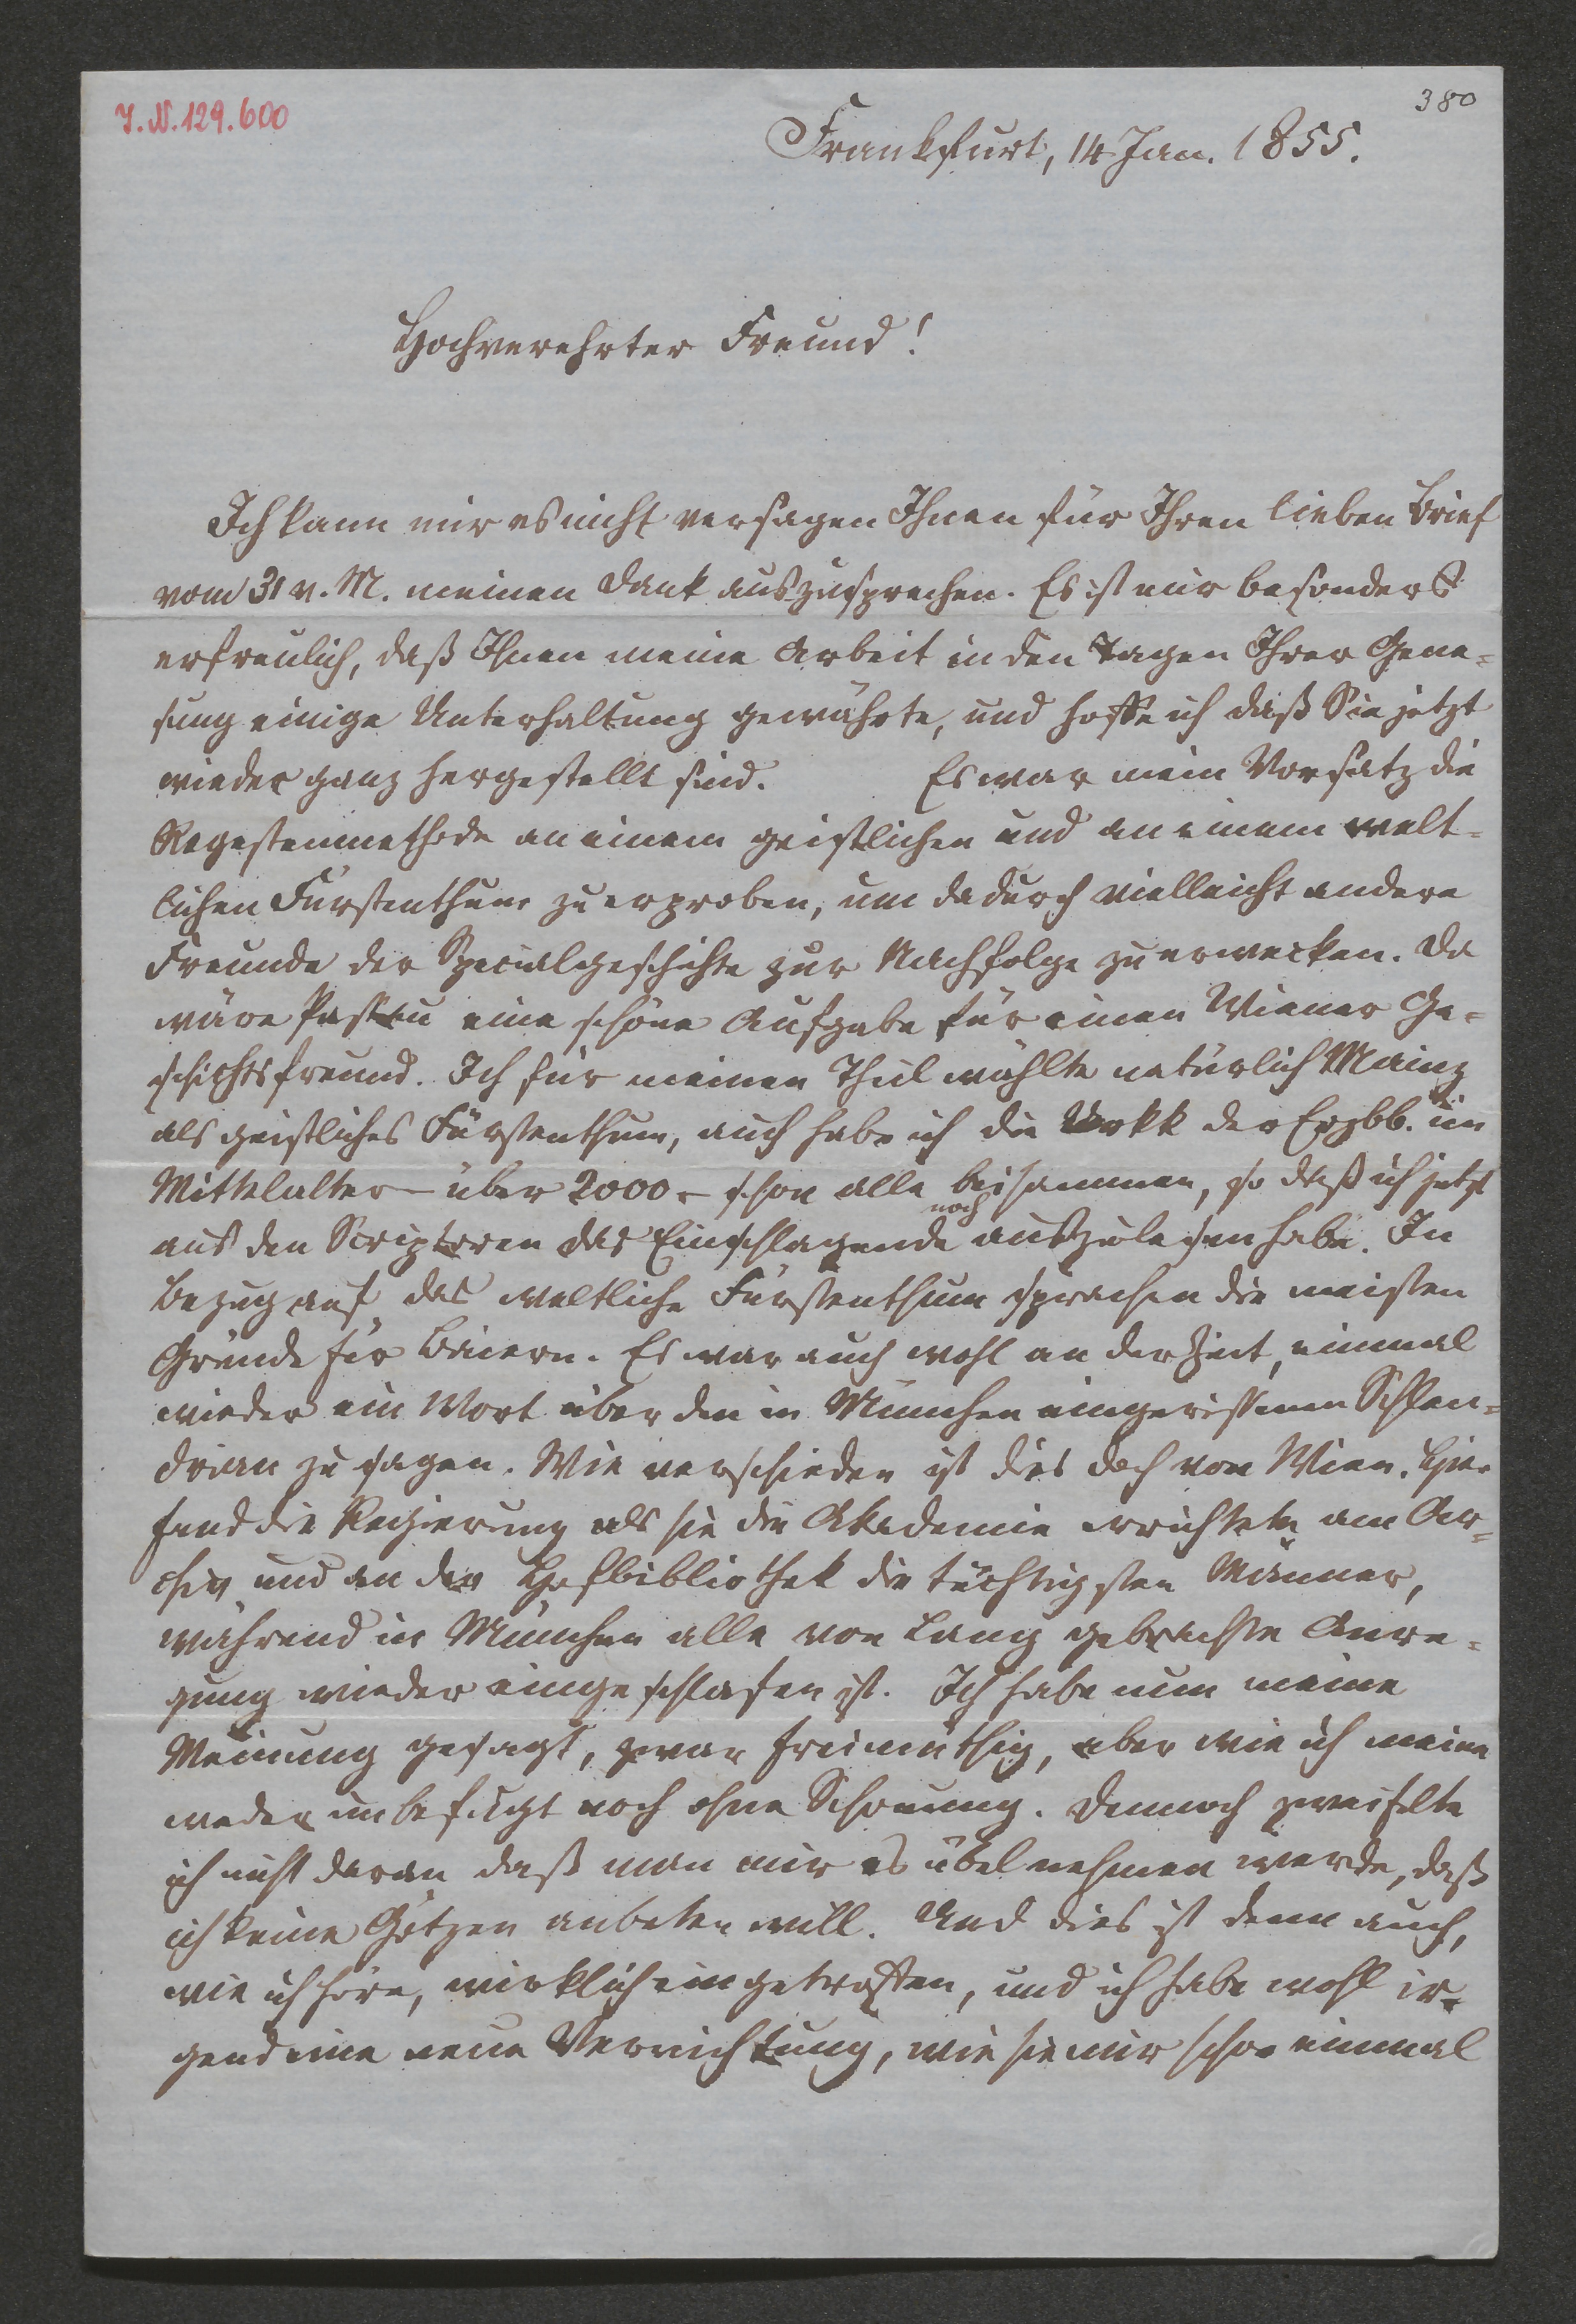 I. N. 129.600
380
Frankfurt, 14 Jan. 1855.
Hochverehrter Freund!
Ich kann mir es nicht versagen Ihnen für Ihren lieben Brief
vom 31 v. M. meinen Dank auszusprechen. Es ist mir besonders
erfreulich, daß Ihnen meine Arbeit in den Tagen Ihrer Gene-
sung einige Unterhaltung gewährte, und hoffe ich daß Sie jetzt
wieder ganz hergestellt sind. Es war mein Vorsatz die
Regestenmethode an einem geistlichen und an einem welt-
lichen Fürstenthum zu erproben, um dadurch vielleicht andere
Freunde der Specialgeschichte zur Nachfolge zu erwecken. Da
wäre Passau eine schöne Aufgabe für einen Wiener Ge-
schichtsfreund. Ich für meinen Theil wählte natürlich Mainz
als geistliches Fürstenthum, auch habe ich die Urkk der Erzbb. im
Mittelalter – über 2000 – schon alle beisammen, so daß ich jetzt
noch
aus den Scriptoren das Einschlagende auszulesen habe. In
Bezug auf das weltliche Fürstenthum sprachen die meisten
Gründe für Baiern. Es war auch wohl an der Zeit, einmal
wieder ein Wort über den in München eingerissenen Schlen-
drian zu sagen. Wie verschieden ist dies doch von Wien. Hier
fand die Regierung als sie die Akademie errichtete am Ar-
chiv und an der Hofbibliothek die tüchtigsten Männer,
während in München alle von Lang gebrachte Anre-
gung wieder eingeschlafen ist. Ich habe nun meine
Meinung gesagt, zwar freimüthig, aber wie ich meine
weder unbefugt noch ohne Schonung. Dennoch zweifelte
ich nicht daran daß man mir es übel nehmen werde, daß
ich keine Götzen anbeten will. Und dies ist denn auch,
wie ich höre, wirklich eingetroffen, und ich habe wohl ir-
gend eine neue Vernichtung, wie sie mir schon einmal